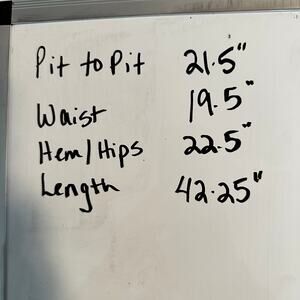 Pit to Pit 21.5"
Waist 19.5"
Hem/Hips 22.5"
Length 42.25"